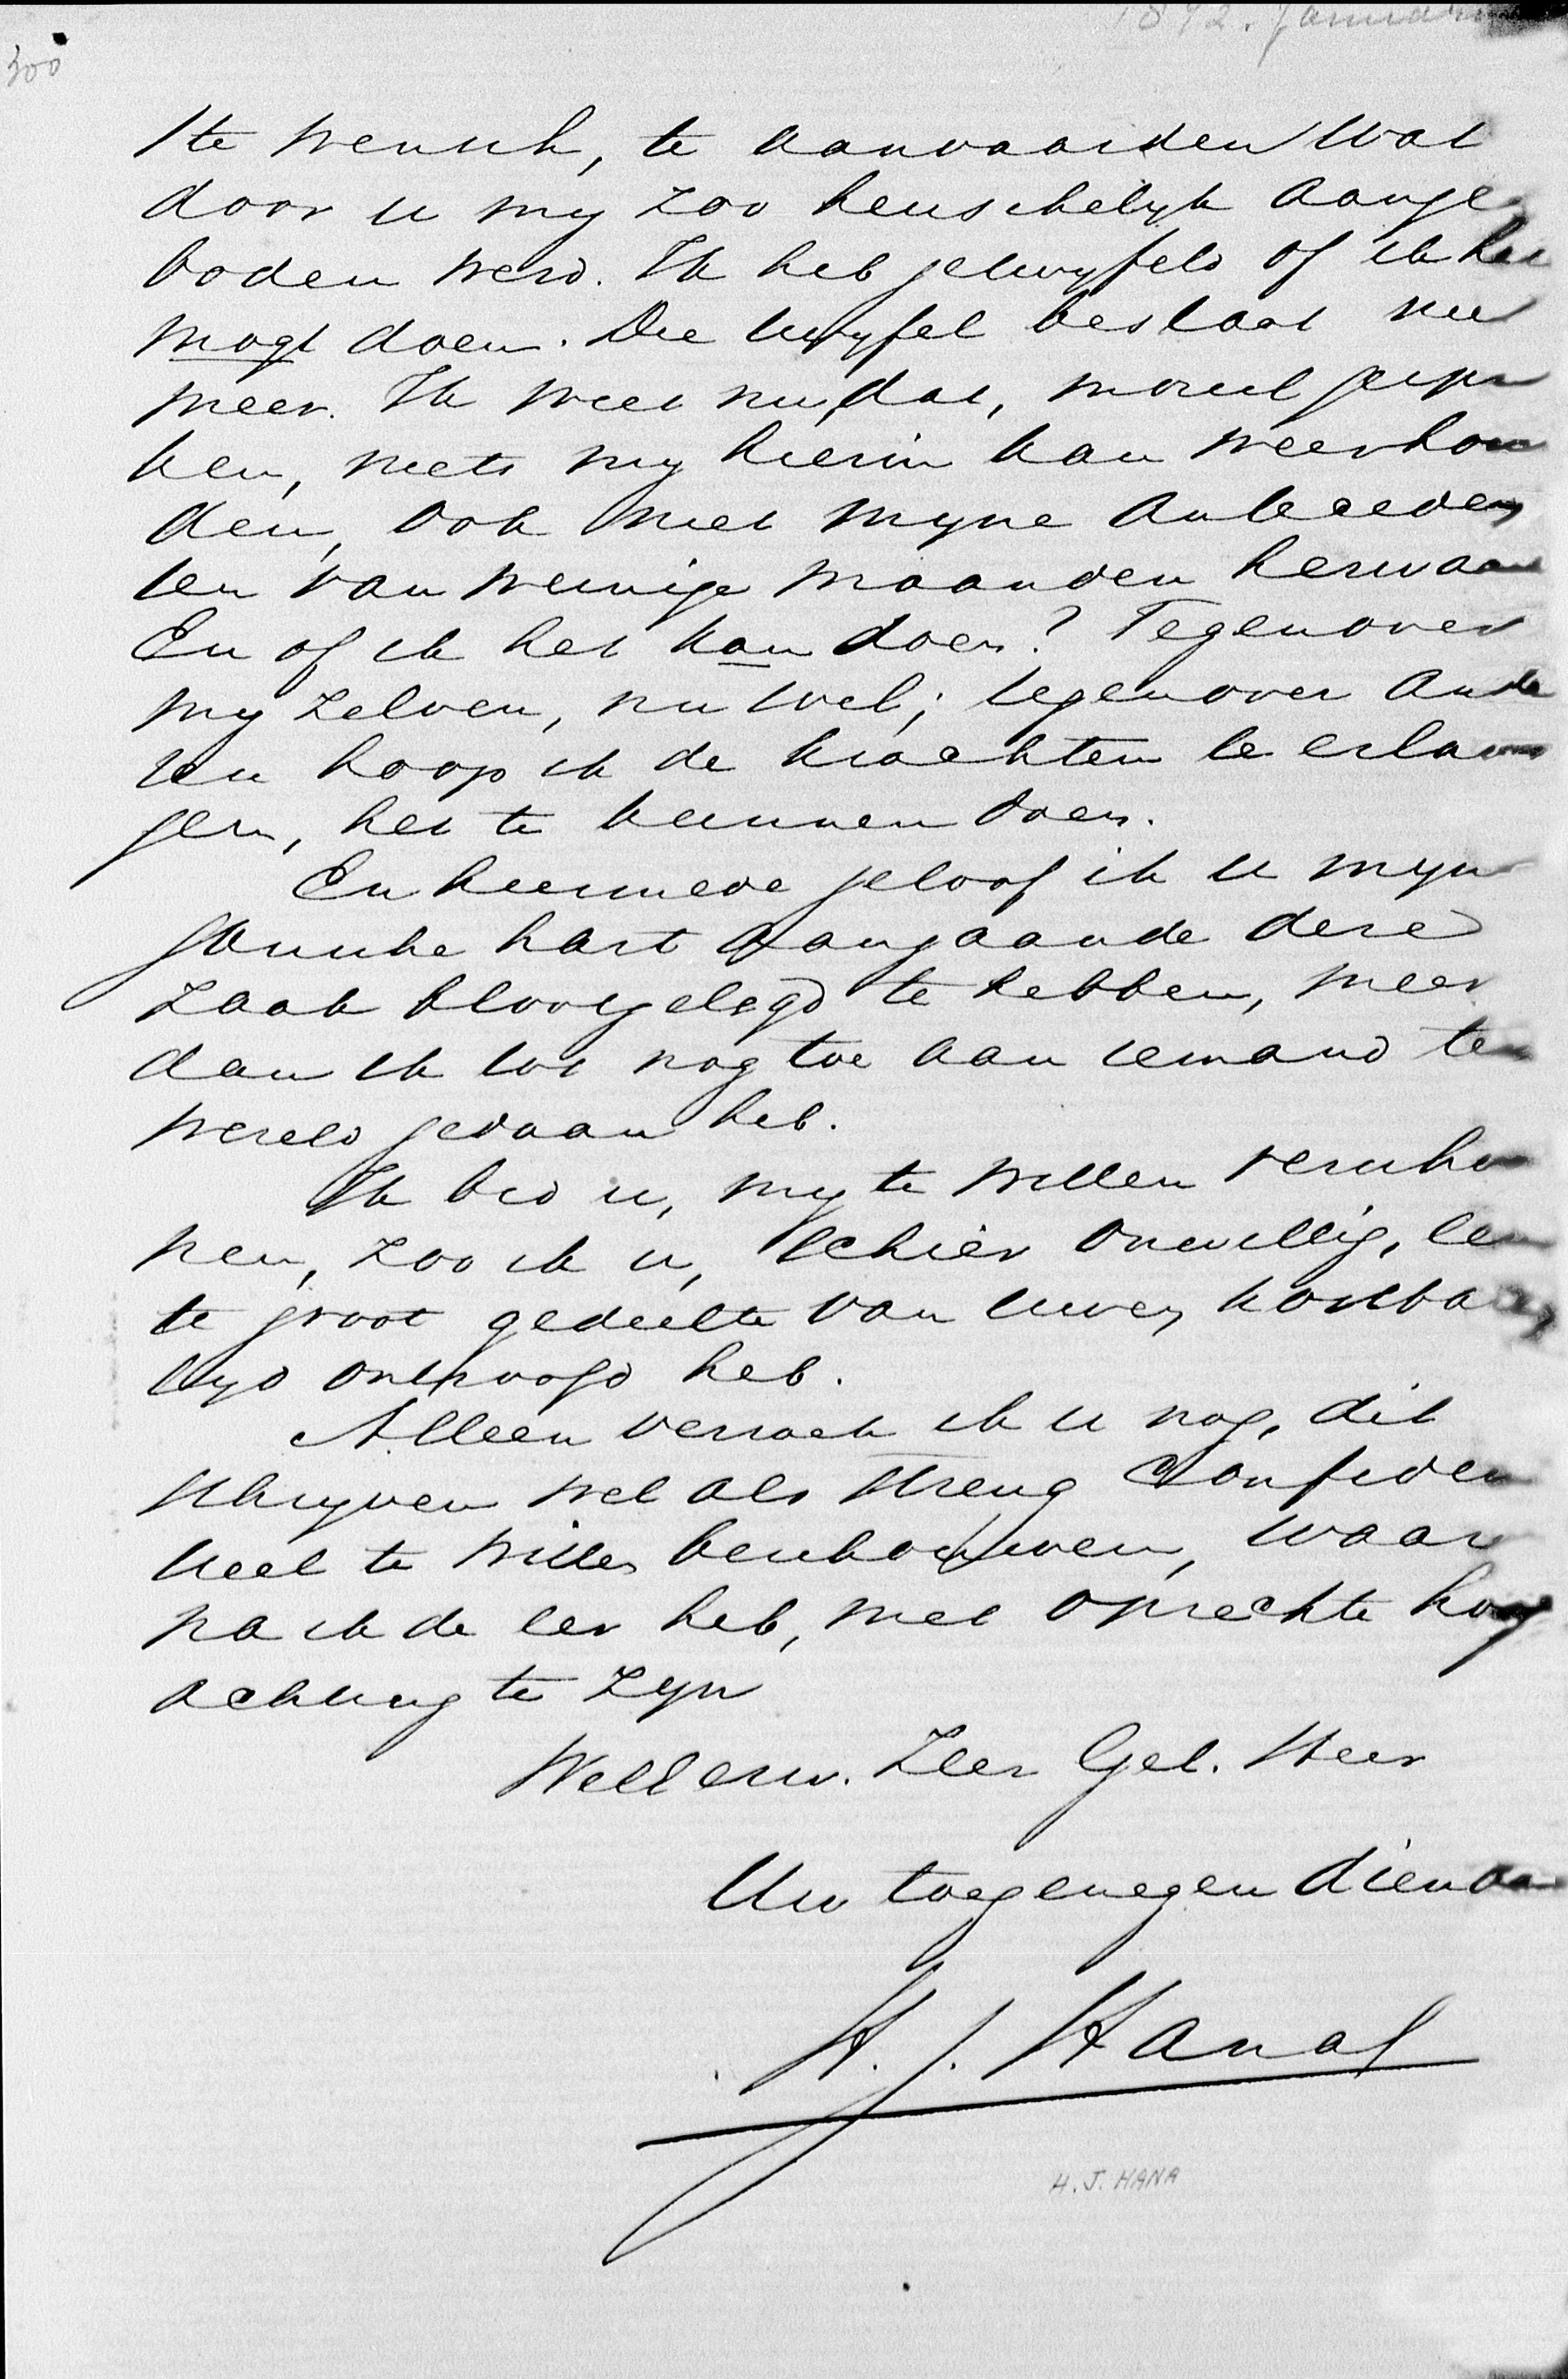 1892. Januari
300
ste wensch, te aanvaarden wat
door u my zoo heuschelyk aange
boden werd. Ik heb getwyfeld of ik het
mogt doen. Die twyfel bestaat niet
meer. Ik weet nu, dat, moreel gespro
ken, niets my hierin kan weerhou
den, ook niet myne anteceden
ten van weinige maanden herwaar
En of ik het kan doen? Tegenover
my zelven, nu wel; tegenover ande
ren hoop ik de krachten te erlan
gen, het te kunnen doen.
En hiermede geloof ik u myn
gansche hart aangaande deze
zaak blootgelegd te hebben, meer
dan ik tot nog toe aan iemand ter
wereld gedaan heb.
Ik bid u, my te willen verschoo
nen, zoo ik u, schier onwillig, een
te groot gedeelte van uwen kostbaren
tyd ontroofd heb.
Alleen verzoek ik u nog, dit
schryven wel als streng confiden
tieel te willen beschouwen, waar
na ik de eer heb, met oprechte hoog
achting te zyn
WelEerw. Zeer Gel. Heer
Uw toegenegen dienaar
H. J. Hana
H. J. HANA